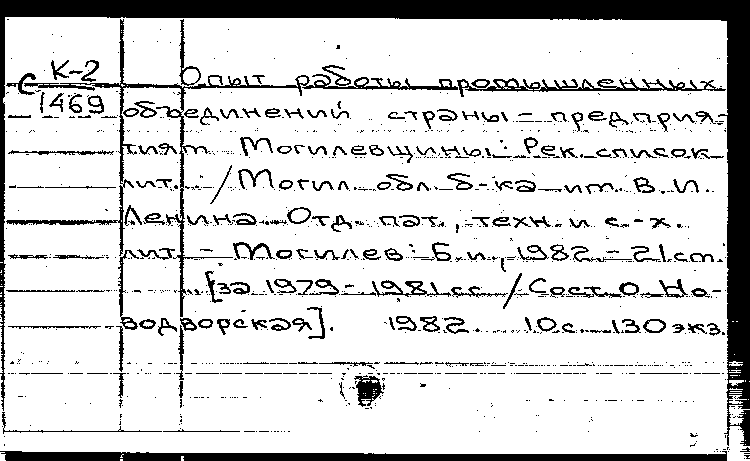 С К-2
1469
Опыт работы промышленных
объединений страны - предприя-
тиям Могилевщины: Рек. список
лит. / Могил. обл. б-ка им. В. И.
Ленина. Отд. пат., техн. и с.-х.
лит. - Могилев: Б. и., 1982. - 21 см.
[за 1979-1981 гг. / Сост. О. На-
водворская]. 1982. 10 с. 130 экз.